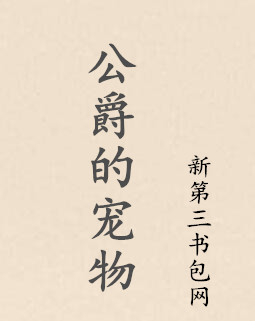 公爵的宠物
新第三书包网